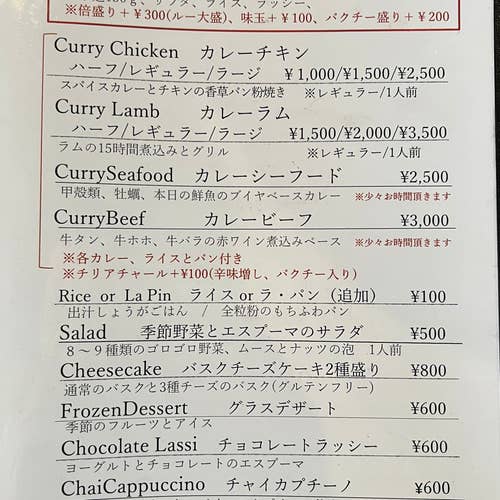 ※倍盛り＋￥300(ルー大盛)、味玉＋￥100、バクチー盛り＋￥200
Curry Chicken カレーチキン
ハーフ/レギュラー/ラージ ￥1,000/¥1,500/¥2,500
スパイスカレーとチキンの香草パン粉焼き ※レギュラー/1人前
Curry Lamb カレーラム
ハーフ/レギュラー/ラージ ¥1,500/¥2,000/¥3,500
ラムの15時間煮込みとグリル ※レギュラー/1人前
CurrySeafood カレーシーフード ¥2,500
甲殻類、牡蠣、本日の鮮魚のブイヤベースカレー ※少々お時間頂きます
CurryBeef カレービーフ ¥3,000
牛タン、牛ホホ、牛バラの赤ワイン煮込みベース ※少々お時間頂きます
※各カレー、ライスとパン付き
※チリアチャール＋¥100(辛味増し、バクチー入り)
Rice or La Pin ライス or ラ・パン（追加） ¥100
出汁しょうがごはん / 全粒粉のもちふわパン
Salad 季節野菜とエスプーマのサラダ ¥500
８～９種類のゴロゴロ野菜、ムースとナッツの泡 1人前
Cheesecake バスクチーズケーキ2種盛り ¥800
通常のバスクと3種チーズのバスク(グルテンフリー)
FrozenDessert グラスデザート ¥600
季節のフルーツとアイス
Chocolate Lassi チョコレートラッシー ¥600
ヨーグルトとチョコレートのエスプーマ
ChaiCappuccino チャイカプチーノ ¥600